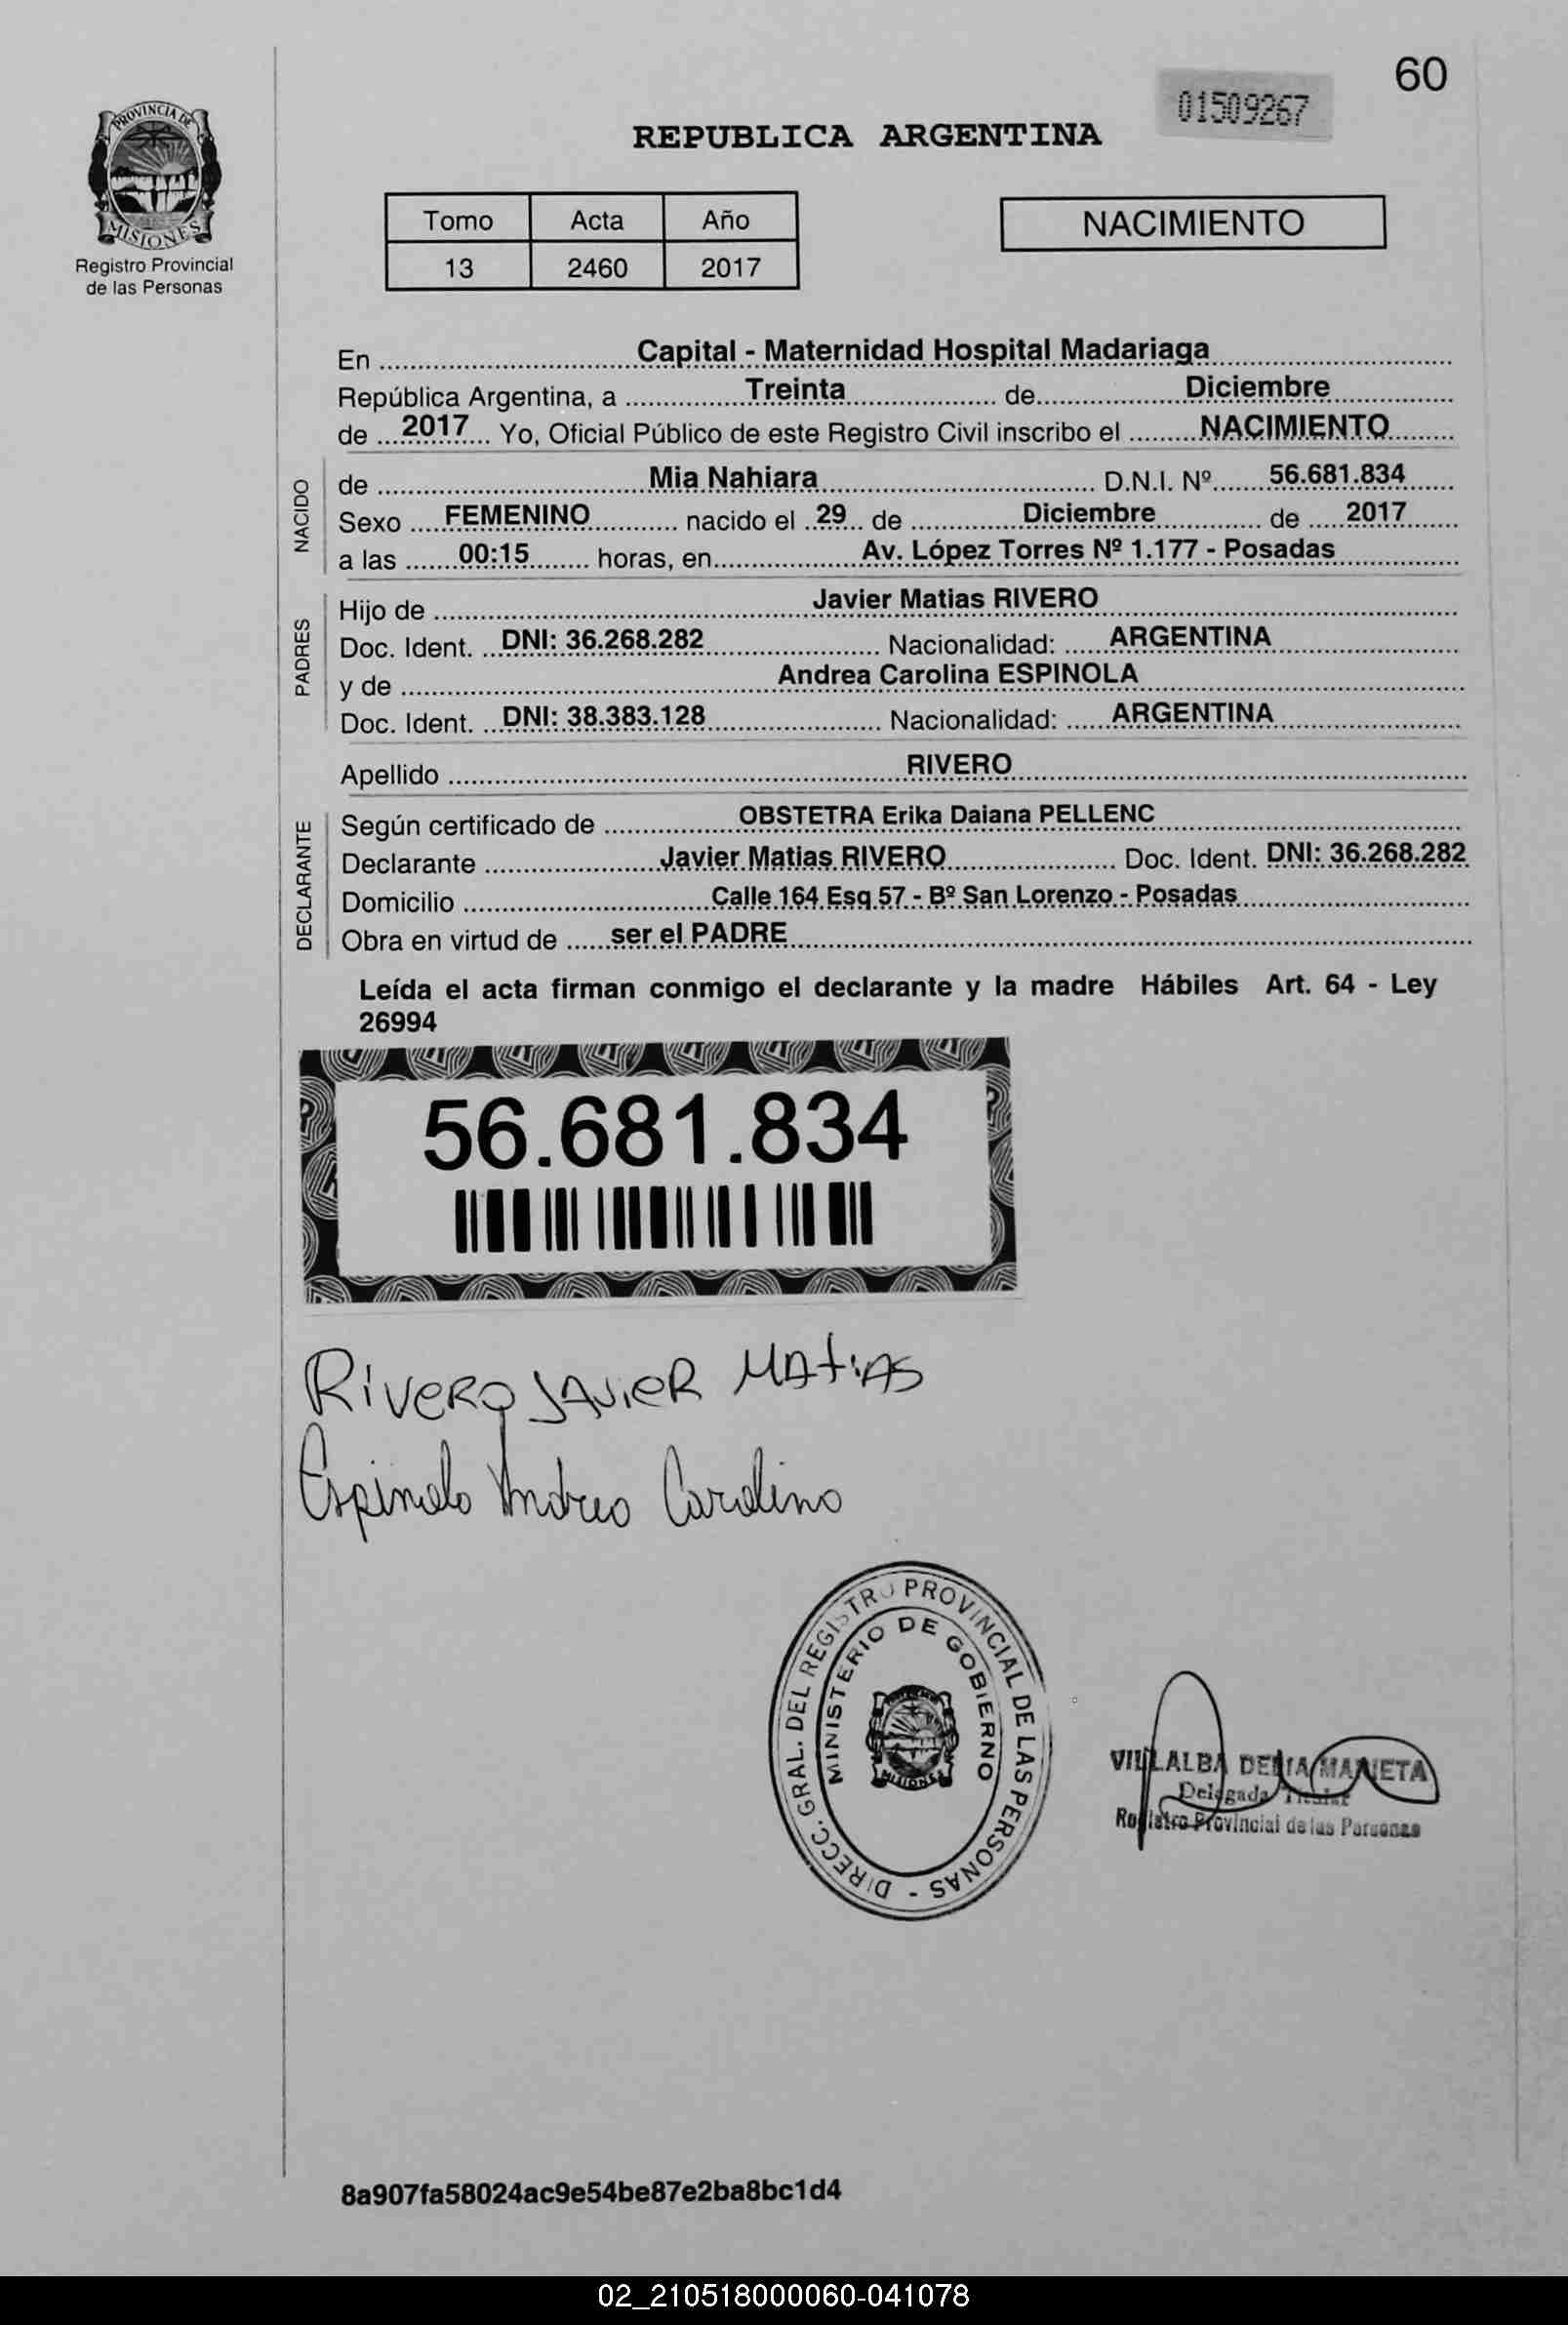 60
01509267
REPUBLICA ARGENTINA
PROVINCIA DE
MISIONES
Registro Provincial
de las Personas
Tomo Acta Año
13 2460 2017
NACIMIENTO
En Capital - Maternidad Hospital Madariaga
República Argentina, a Treinta de Diciembre
de 2017 Yo, Oficial Público de este Registro Civil inscribo el NACIMIENTO
NACIDO
de Mia Nahiara D.N.I. Nº 56.681.834
Sexo FEMENINO nacido el 29 de Diciembre de 2017
a las 00:15 horas, en Av. López Torres Nº 1.177 - Posadas
PADRES
Hijo de Javier Matias RIVERO
Doc. Ident. DNI: 36.268.282 Nacionalidad: ARGENTINA
y de Andrea Carolina ESPINOLA
Doc. Ident. DNI: 38.383.128 Nacionalidad: ARGENTINA
Apellido RIVERO
DECLARANTE
Según certificado de OBSTETRA Erika Daiana PELLENC
Declarante Javier Matias RIVERO Doc. Ident. DNI: 36.268.282
Domicilio Calle 164 Esq 57 - Bº San Lorenzo - Posadas
Obra en virtud de ser el PADRE
Leída el acta firman conmigo el declarante y la madre Hábiles Art. 64 - Ley
26994
56.681.834
Rivero Javier Matias
Espinola Andrea Carolina
DIRECC. GRAL. DEL REGISTRO PROVINCIAL DE LAS PERSONAS -
MINISTERIO DE GOBIERNO
MISIONES
VILLALBA
Delegada Titular
Registro Provincial de las Personas
8a907fa58024ac9e54be87e2ba8bc1d4
02_210518000060-041078